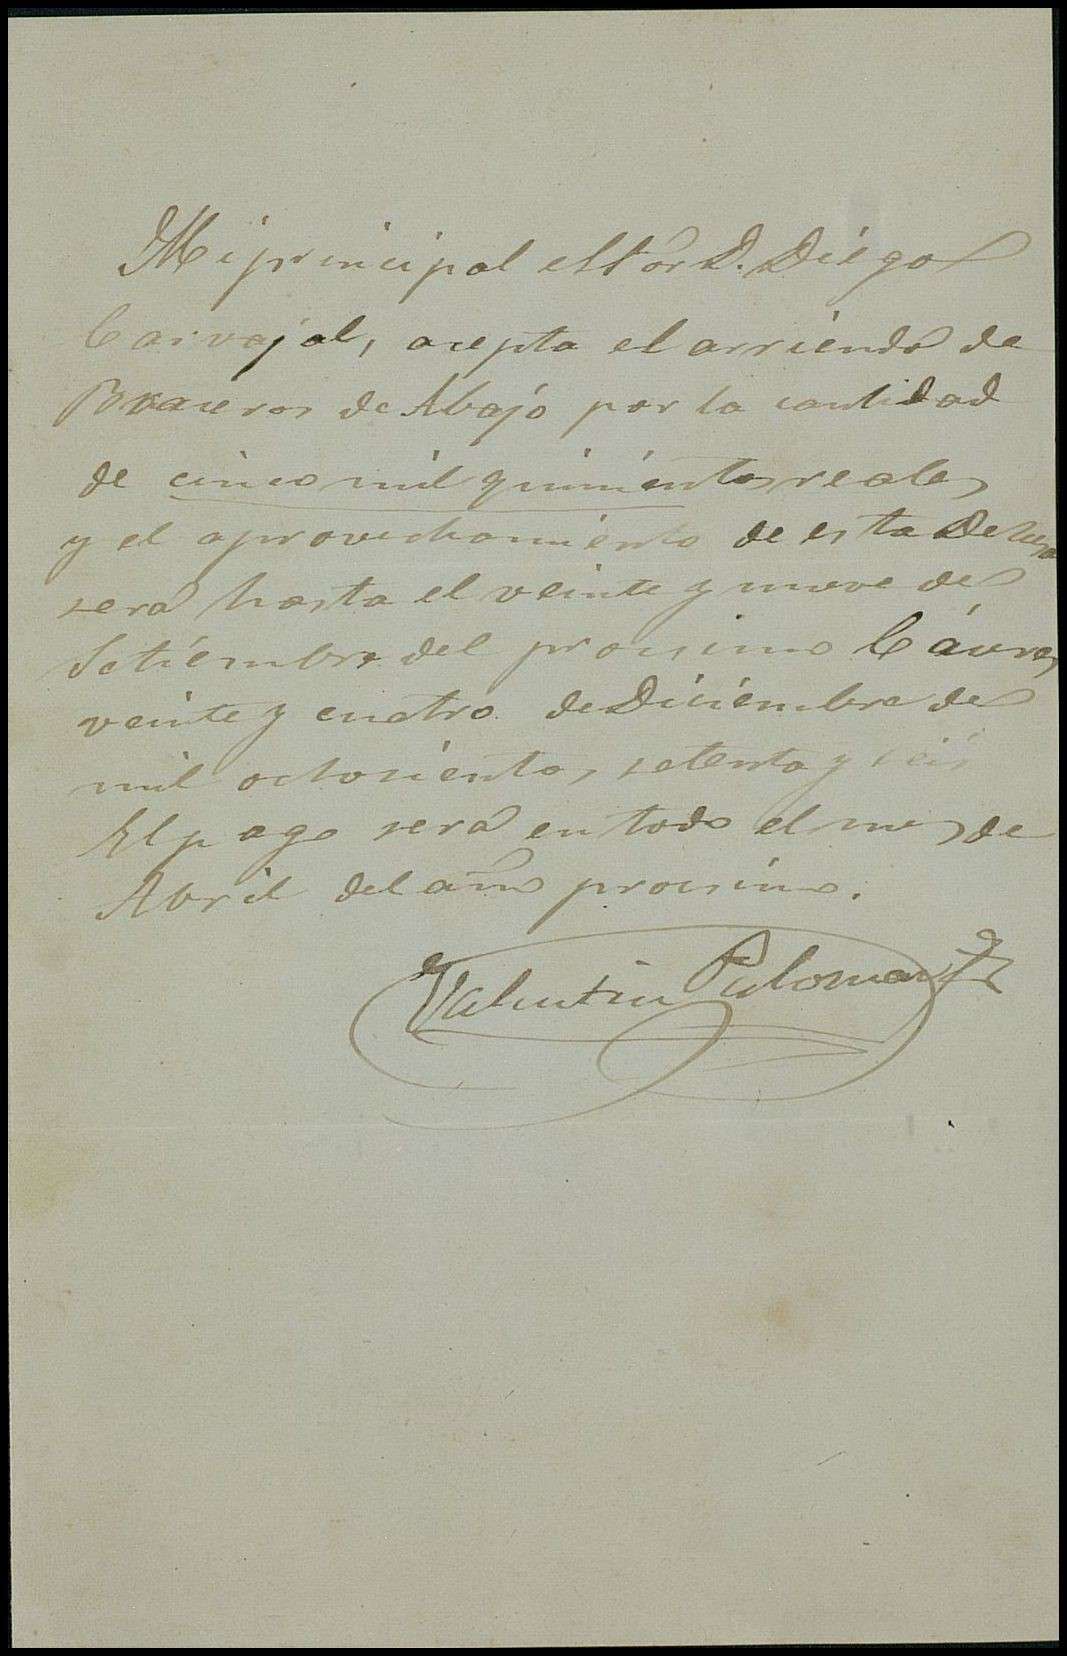 Mi principal el Sor D. Diego
Carvajal, acepta el arriendo de
Braceros de Abajo por la cantidad
de cinco mil quinientos reales
y el aprovechamiento de esta Dehesa
será hasta el veinte y nueve de
Setiémbre del procsimo Cáceres
veinte y cuatro de Diciémbre de
mil ochosiéntos setenta y seis
El pago será en todo el mes de
Abril del año procsimo.
Valentin Palomar